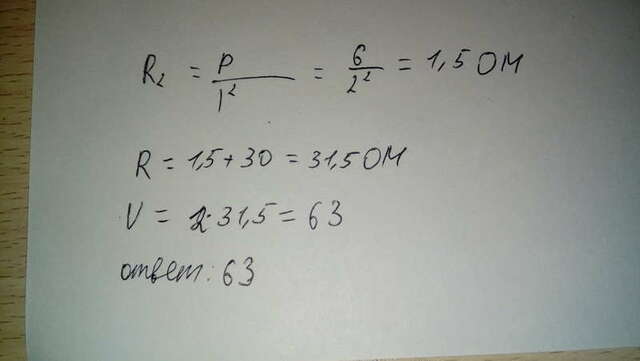 R₂ = P/I² = 6/2² = 1,5 ОМ
R = 1,5 + 30 = 31,5 ОМ
V = 2·31,5 = 63
ответ: 63